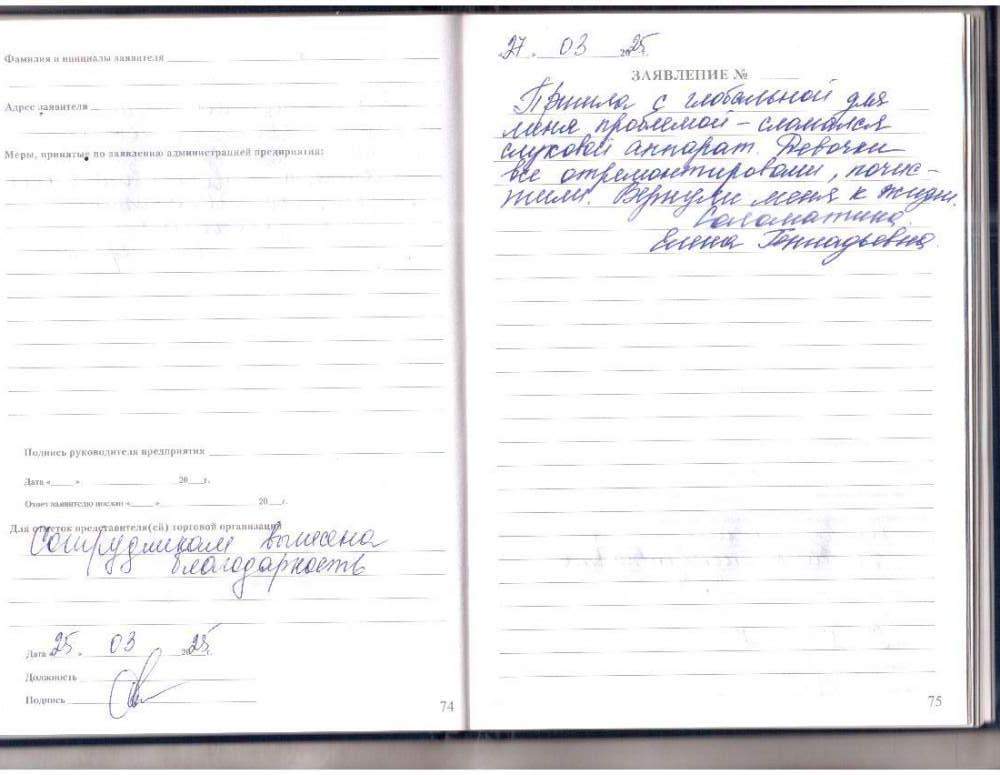 Фамилия и инициалы заявителя
Адрес заявителя
Меры, принятые по заявлению администрацией предприятия:
Подпись руководителя предприятия
Дата «___» 20__г.
Ответ заявителю послан «___» 20__г.
Для отметок представителя(ей) торговой организации
Сотрудникам вынесена
благодарность
Дата «25» 03 2025г.
Должность
Подпись
74
«27» 03 2025г.
ЗАЯВЛЕНИЕ №
Пришла с глобальной для
меня проблемой – сломался
слуховой аппарат. Девочки
все отремонтировали, почис-
тили. Вернули меня к жизни.
Соломатина
Елена Геннадьевна.
75